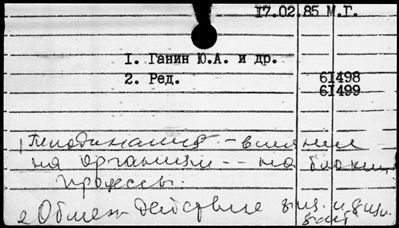 17.02.85 М.Г.
1. Ганин Ю.А. и др.
2. Ред. 61498
61499
1) Гиподинамия - влияние
на организм -- на биохим.
процессы.
2) Обмен - действие физ.